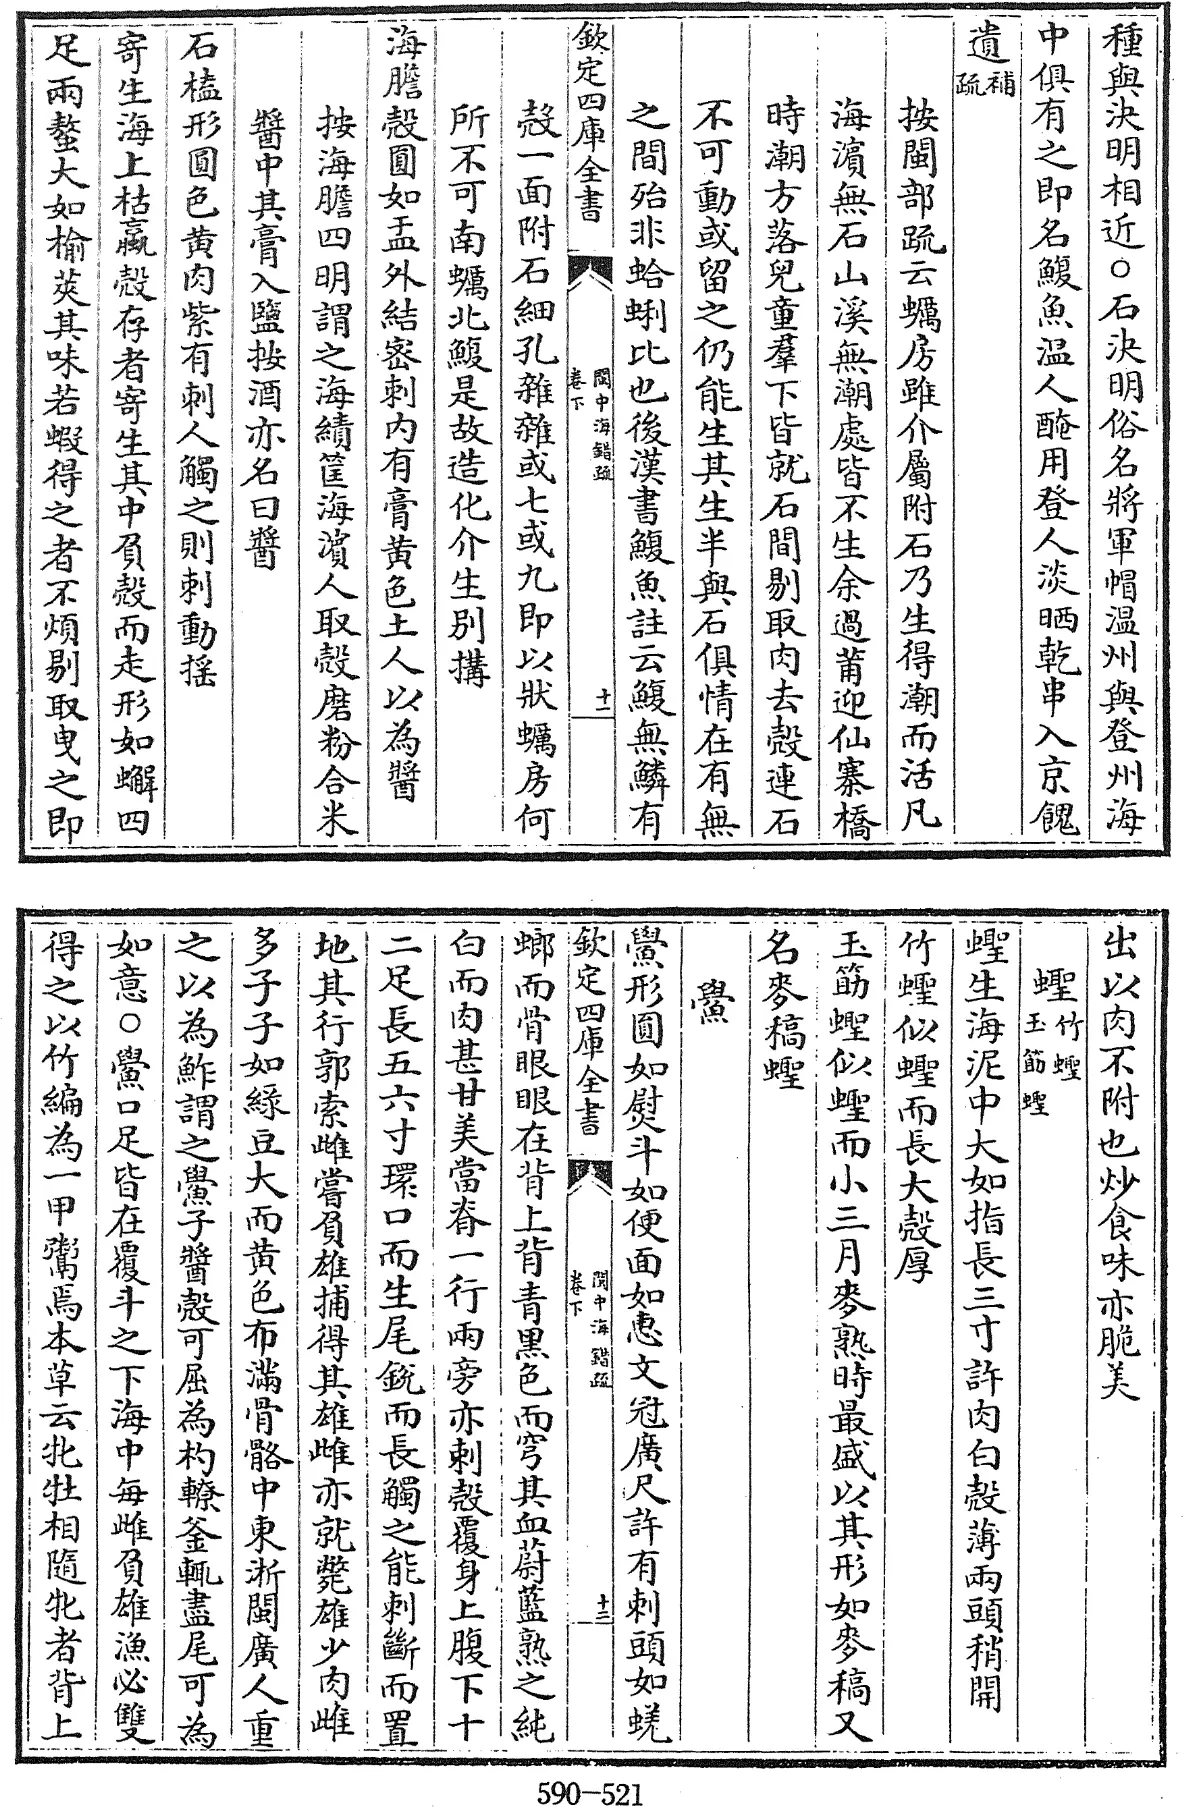 種與決明相近○石決明俗名將軍帽温州與登州海
中俱有之即名鰒魚温人醃用登人淡晒乾串入京餽
遺補疏
按閩部疏云蠣房雖介屬附石乃生得潮而活凡
海濵無石山溪無潮處皆不生余過莆迎仙寨橋
時潮方落兒童羣下皆就石間剔取肉去殻連石
不可動或留之仍能生其生半與石俱情在有無
之間殆非蛤蜊比也後漢書鰒魚註云鰒無鱗有
欽定四庫全書
閩中海錯疏
卷下
十一
殻一面附石細孔雜雜或七或九即以狀蠣房何
所不可南蠣北鰒是故造化介生別搆
海膽殻圓如盂外結密刺内有膏黄色土人以為醬
按海膽四明謂之海績筐海濵人取殻磨粉合米
醬中其膏入鹽按酒亦名曰醬
石榼形圓色黄肉紫有刺人觸之則刺動摇
寄生海上枯蠃殻存者寄生其中負殻而走形如蠏四
足兩螯大如榆莢其味若蝦得之者不煩剔取曳之即
出以肉不附也炒食味亦脆美
蟶竹蟶
玉筯蟶
蟶生海泥中大如指長三寸許肉白殻薄兩頭稍開
竹蟶似蟶而長大殻厚
玉筯蟶似蟶而小三月麥熟時最盛以其形如麥稿又
名麥稿蟶
鱟
鱟形圓如熨斗如便面如惠文冠廣尺許有刺頭如蜣
欽定四庫全書
閩中海錯疏
卷下
十二
螂而骨眼眼在背上背青黒色而穹其血蔚藍熟之純
白而肉甚甘美當脊一行兩旁亦刺殻覆身上腹下十
二足長五六寸環口而生尾銳而長觸之能刺斷而置
地其行郭索雌嘗負雄捕得其雄雌亦就斃雄少肉雌
多子子如緑豆大而黄色布滿骨骼中東浙閩廣人重
之以為鮓謂之鱟子醬殻可屈為杓轑釜輒盡尾可為
如意○鱟口足皆在覆斗之下海中每雌負雄漁必雙
得之以竹編為一甲鬻焉本草云牝牡相隨牝者背上
590-521